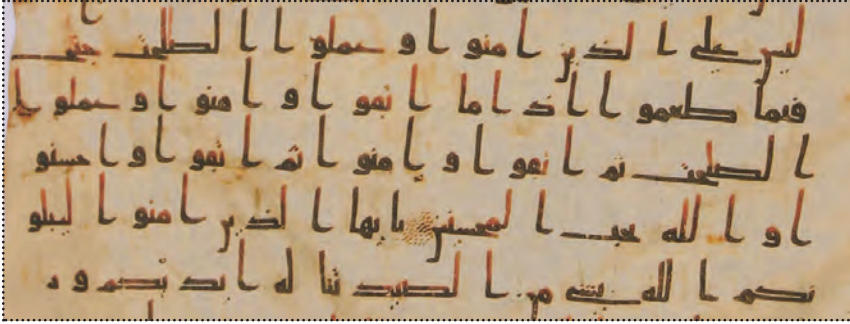 ليس على الذين امنوا وعملوا الصلحت جنح
فيما طعموا اذا ما اتقوا وامنوا وعملوا
الصلحت ثم اتقوا وامنوا ثم اتقوا واحسنو
ا والله يحب المحسنين يايها الذين امنوا ليبلو
نكم الله بشى من الصيد تناله ايديكم و ر